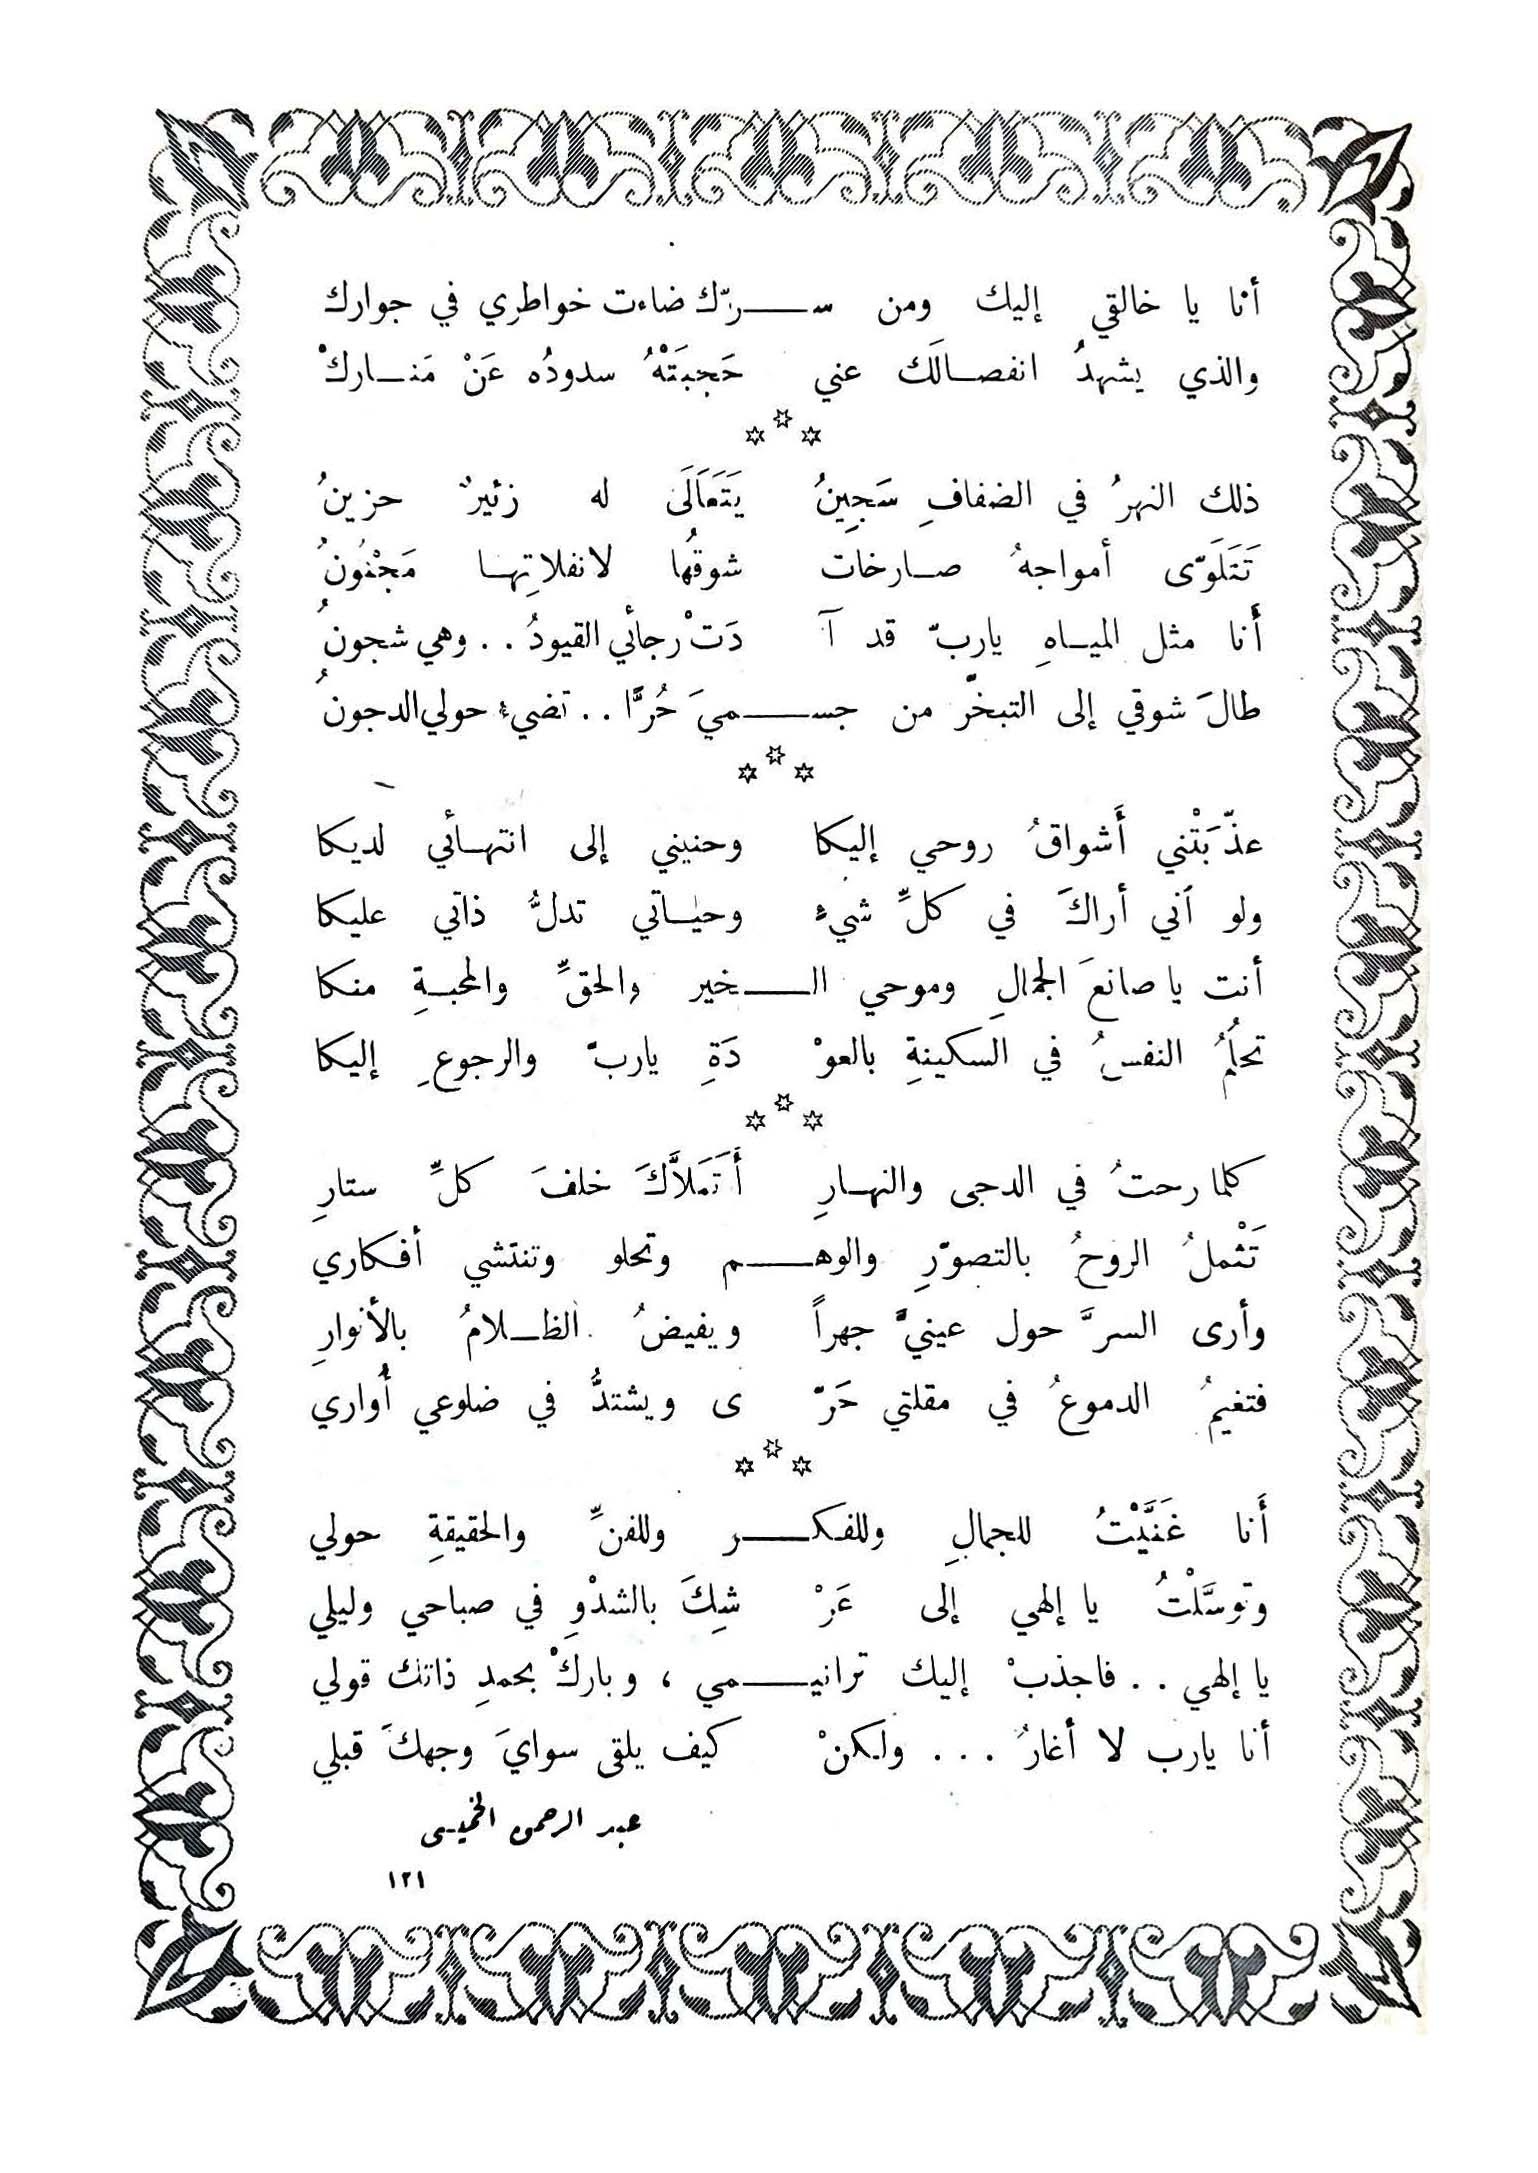 أنا يا خالقي إليك ومن ســرّك ضاءت خواطري في جوارك
والذي يشهدُ انفصالَك عني حَجبَتْهُ سدودُه عَنْ مَنارِكْ
***
ذلك النهرُ في الضفافِ سَجِينُ يَتَعَالَى له زئيرٌ حزينُ
تَتَلَوّى أمواجهُ صارخات شوقُها لانفلاتِها مَجْنُونُ
أَنا مثل المياهِ يارب قد آ دَتْ رجائي القيودُ .. وهي شجونُ
طالَ شوقي إلى التبخّر من جســميَ حُرًّا .. تضيءُ حولي الدجونُ
***
عذّبَتْني أَشواقُ روحي إليكا وحنيني إلى انتهائي لديكا
ولو آني أراكَ في كلِّ شيءٍ وحياتي تدلُّ ذاتي عليكا
أنت يا صانعَ الجمالِ وموحي الــخير والحقِّ والمحبةِ منكا
تحلُمُ النفسُ في السكينةِ بالعوْ دَةِ ياربّ والرجوعِ إليكا
***
كلما رحتُ في الدجى والنهارِ أَتَملاَّكَ خلفَ كلِّ ستارِ
تَثْملُ الروحُ بالتصوّرِ والوهــم وتحلو وتنتشي أفكاري
وأرى السرَّ حول عينيَّ جهراً ويفيضُ الظلامُ بالأنوارِ
فتغيمُ الدموعُ في مقلتي حَرّ ى ويشتدُّ في ضلوعي أُواري
***
أَنا غَنَّيْتُ للجمالِ وللفكــر وللفنِّ والحقيقةِ حولي
وتوسَّلْتُ يا إلهي إلى عَرْ شِكَ بالشدْوِ في صباحي وليلي
يا إلهي .. فاجذبْ إليك ترانيــمي ، وباركْ بحمدِ ذاتك قولي
أنا يارب لا أغارُ ... ولكنْ كيف يلقى سوايَ وجهكَ قبلي
عبد الرحمن الخميسي
١٢١